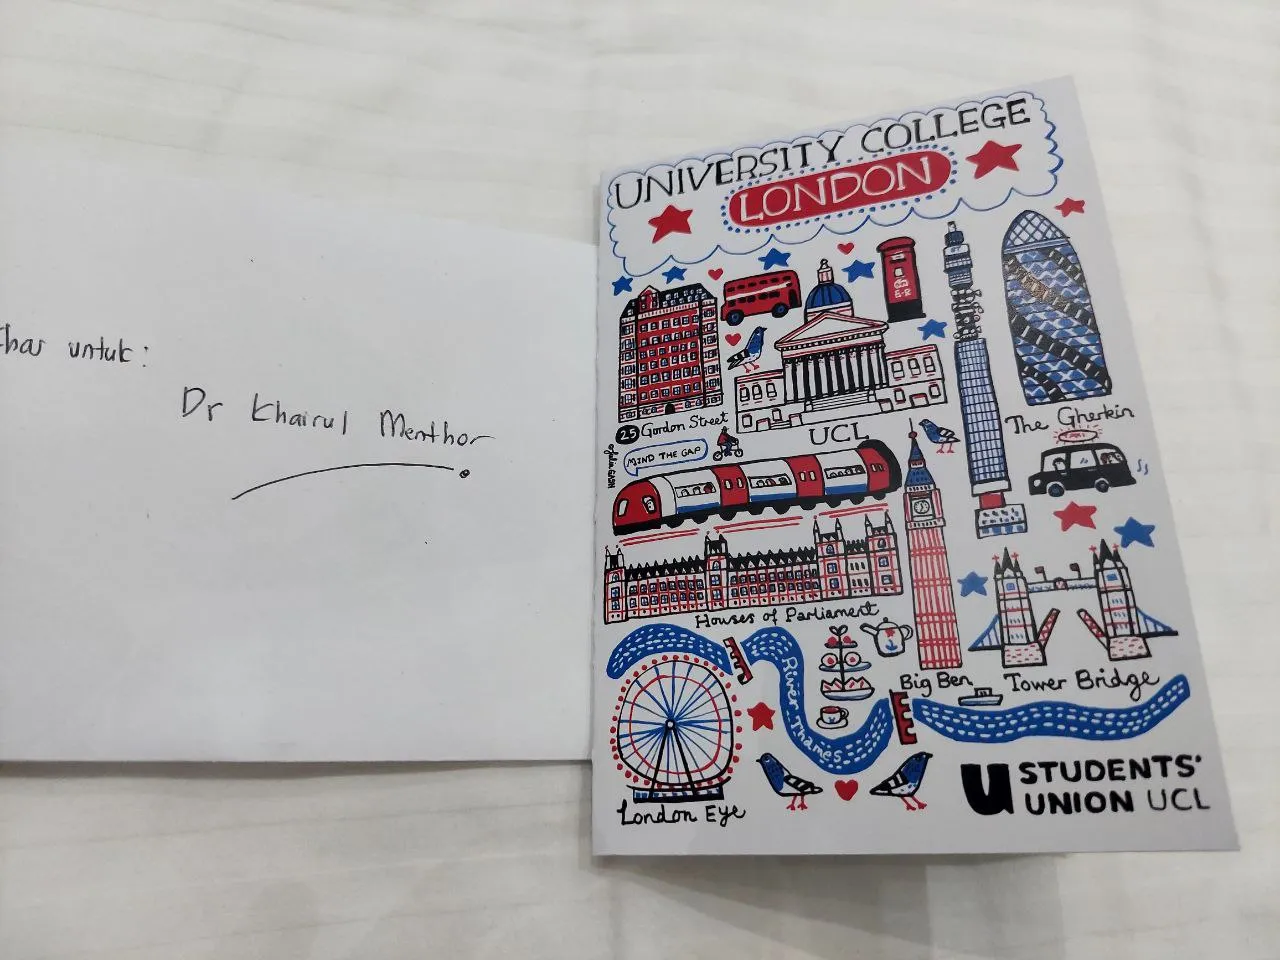 untuk:
Dr Khairul Menthor
UNIVERSITY COLLEGE
LONDON
E·R
25 Gordon Street
UCL
The Gherkin
MIND THE GAP
Houses of Parliament
Big Ben
Tower Bridge
River Thames
London Eye
U STUDENTS'
UNION UCL